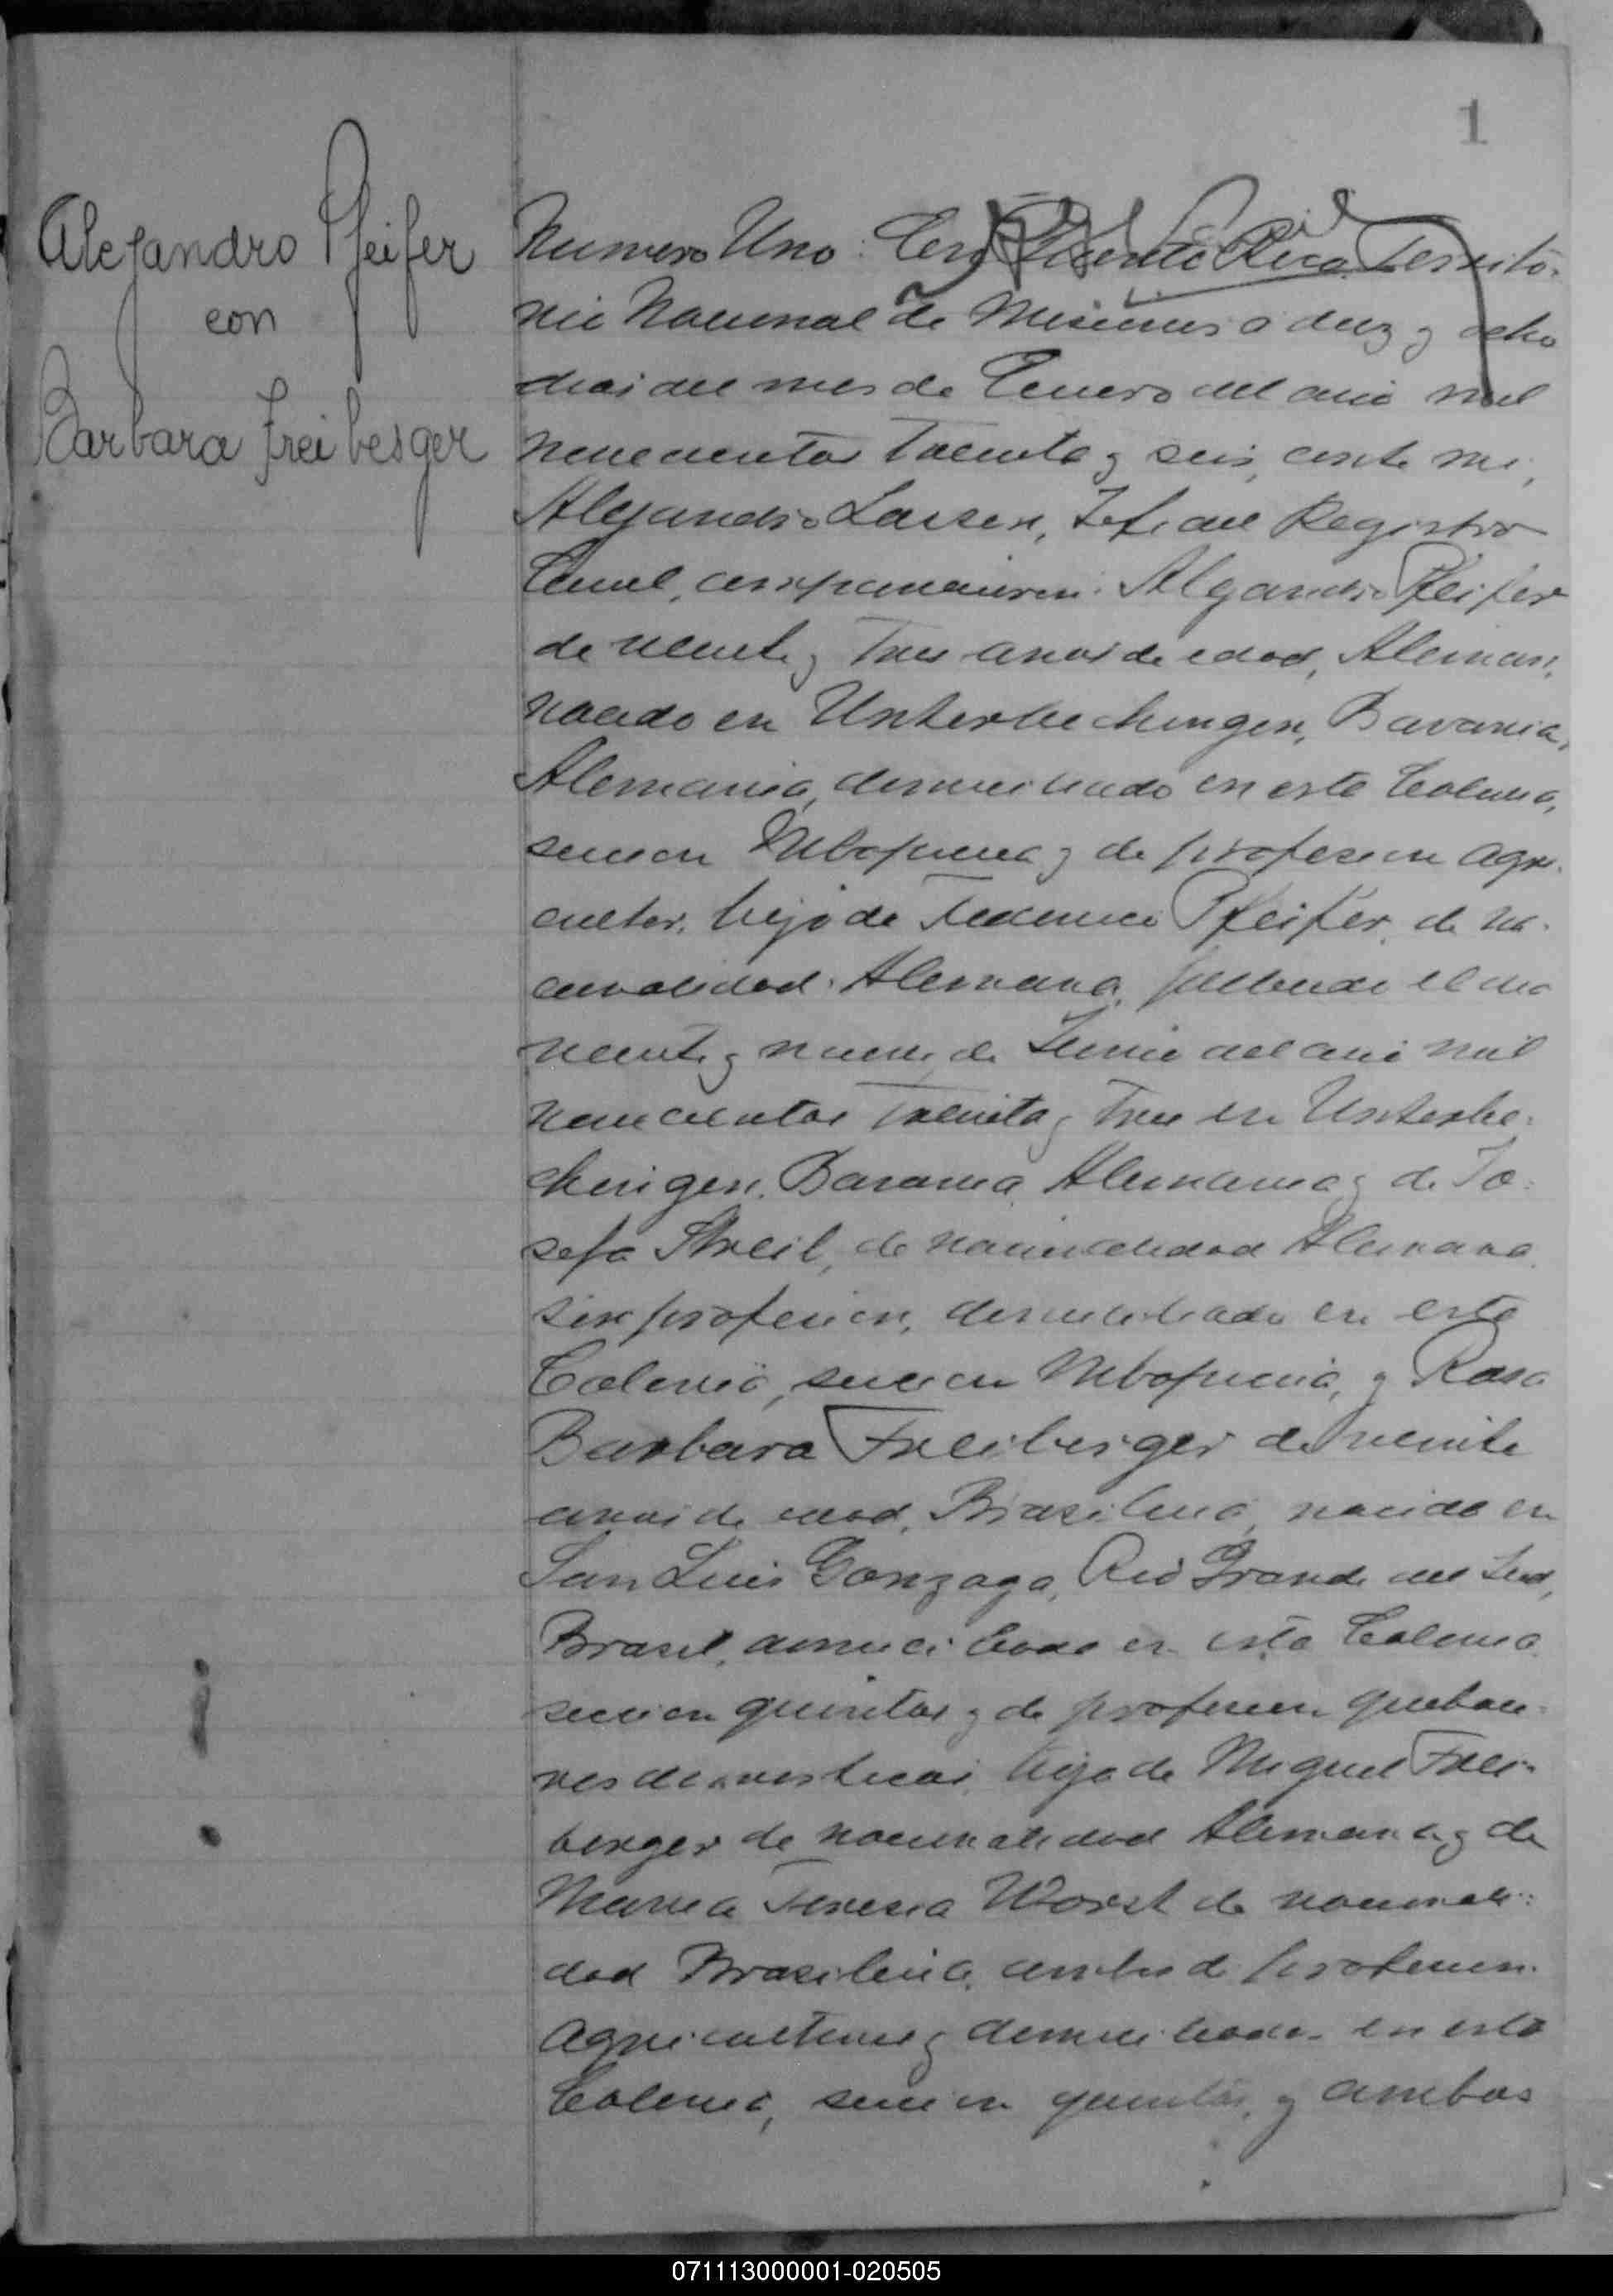 1
Alejandro Pfeifer
con
Barbara Freiberger
Numero Uno: En Puerto Rico Territo-
rio Nacional de Misiones a diez y ocho
dias del mes de Enero del año mil
novecientos treinta y seis, ante mi,
Alejandro Larsen, Jefe del Registro
Civil, comparecieron: Alejandro Pfeifer
de veinte y tres años de edad, Aleman,
nacido en Unterbechingen, Bavaria,
Alemania, domiciliado en esta Colonia,
seccion Mbopicua y de profesion agri-
cultor, hijo de Federico Pfeifer, de na-
cionalidad Alemana, fallecido el dia
veinte y nueve de Junio del año mil
novecientos treinta y tres en Unterbe-
chingen, Bavaria Alemania y de Jo-
sefa Streil, de nacionalidad Alemana,
sin profesion, domiciliada en esta
Colonia, seccion Mbopicua, y Rosa
Barbara Freiberger de veinte
años de edad, Brasileña, nacida en
San Luis Gonzaga, Rio Grande del Sud,
Brasil, domiciliada en esta Colonia
seccion quintas y de profesion quehace-
res domesticos, hija de Miguel Frei-
berger de nacionalidad Alemana y de
Maria Teresa Worst de nacionali-
dad Brasileña, ambos de profesion
agricultores y domiciliados en esta
Colonia, seccion quintas, y ambos
071113000001-020505